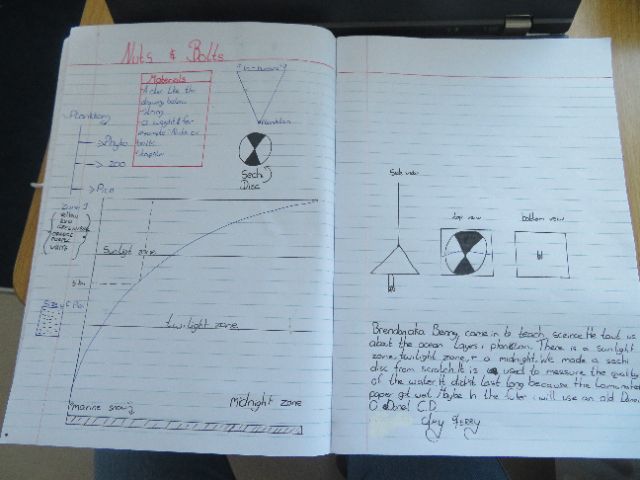 Nuts & Bolts
Materials
A disc like the
drawing below
String
a weight for
example Nuts or
bolts
Plankton
Phyto
Zoo
Pico
Plankton
Sechi
Disc
yellow
white
Sunlight zone
twilight zone
Midnight zone
marine snow
Side view
top view
bottom view
Brendan aka Benny came in to teach sceince He taut us
about the ocean layers & plankton. There is a sunlight
zone, twilight zone, + a midnight. We made a sechi
disc from scratch. It is used to measure the quality
of the water. It didn't last long because the laminated
paper got wet. Maybe in the futer i will use an old Daniel
O Donel C.D.